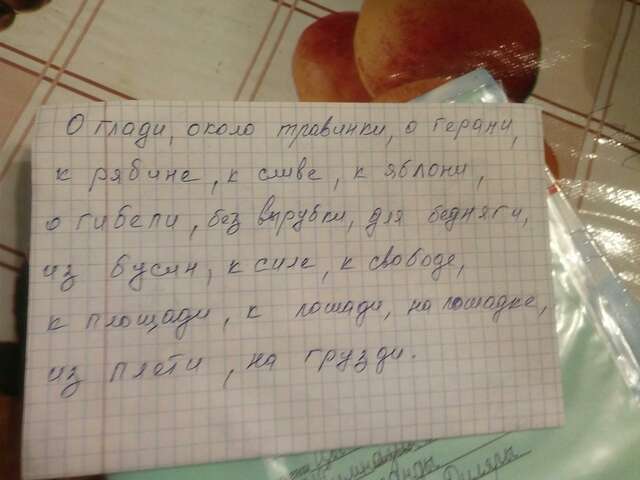 О глади, около травинки, о герани,
к рябине, к сливе, к яблони,
о гибели, без вырубки, для бедняги,
из бусин, к силе, к свободе,
к площади, к лошади, на лошадке,
из плети, на грузди.